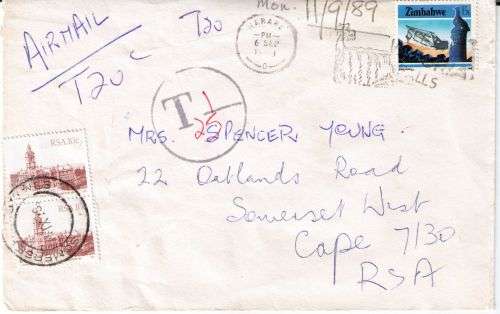 Mon. 11/9/89
AIRMAIL
T20
T20c
HARARE
PM
6 SEP
Zimbabwe
15c
FALLS
T 1
25
MRS. SPENCER YOUNG.
22 Oatlands Road
Somerset West
Cape 7130
RSA
RSA 10c